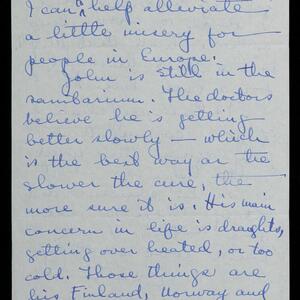 I can help alleviate
a little misery for
people in Europe.
John is still in the
sanitarium. The doctors
believe he is getting
better slowly — which
is the best way as the
slower the cure, the
more sure it is. His main
concern in life is draughts,
getting over heated, or too
cold. Those things are
his Finland, Norway and